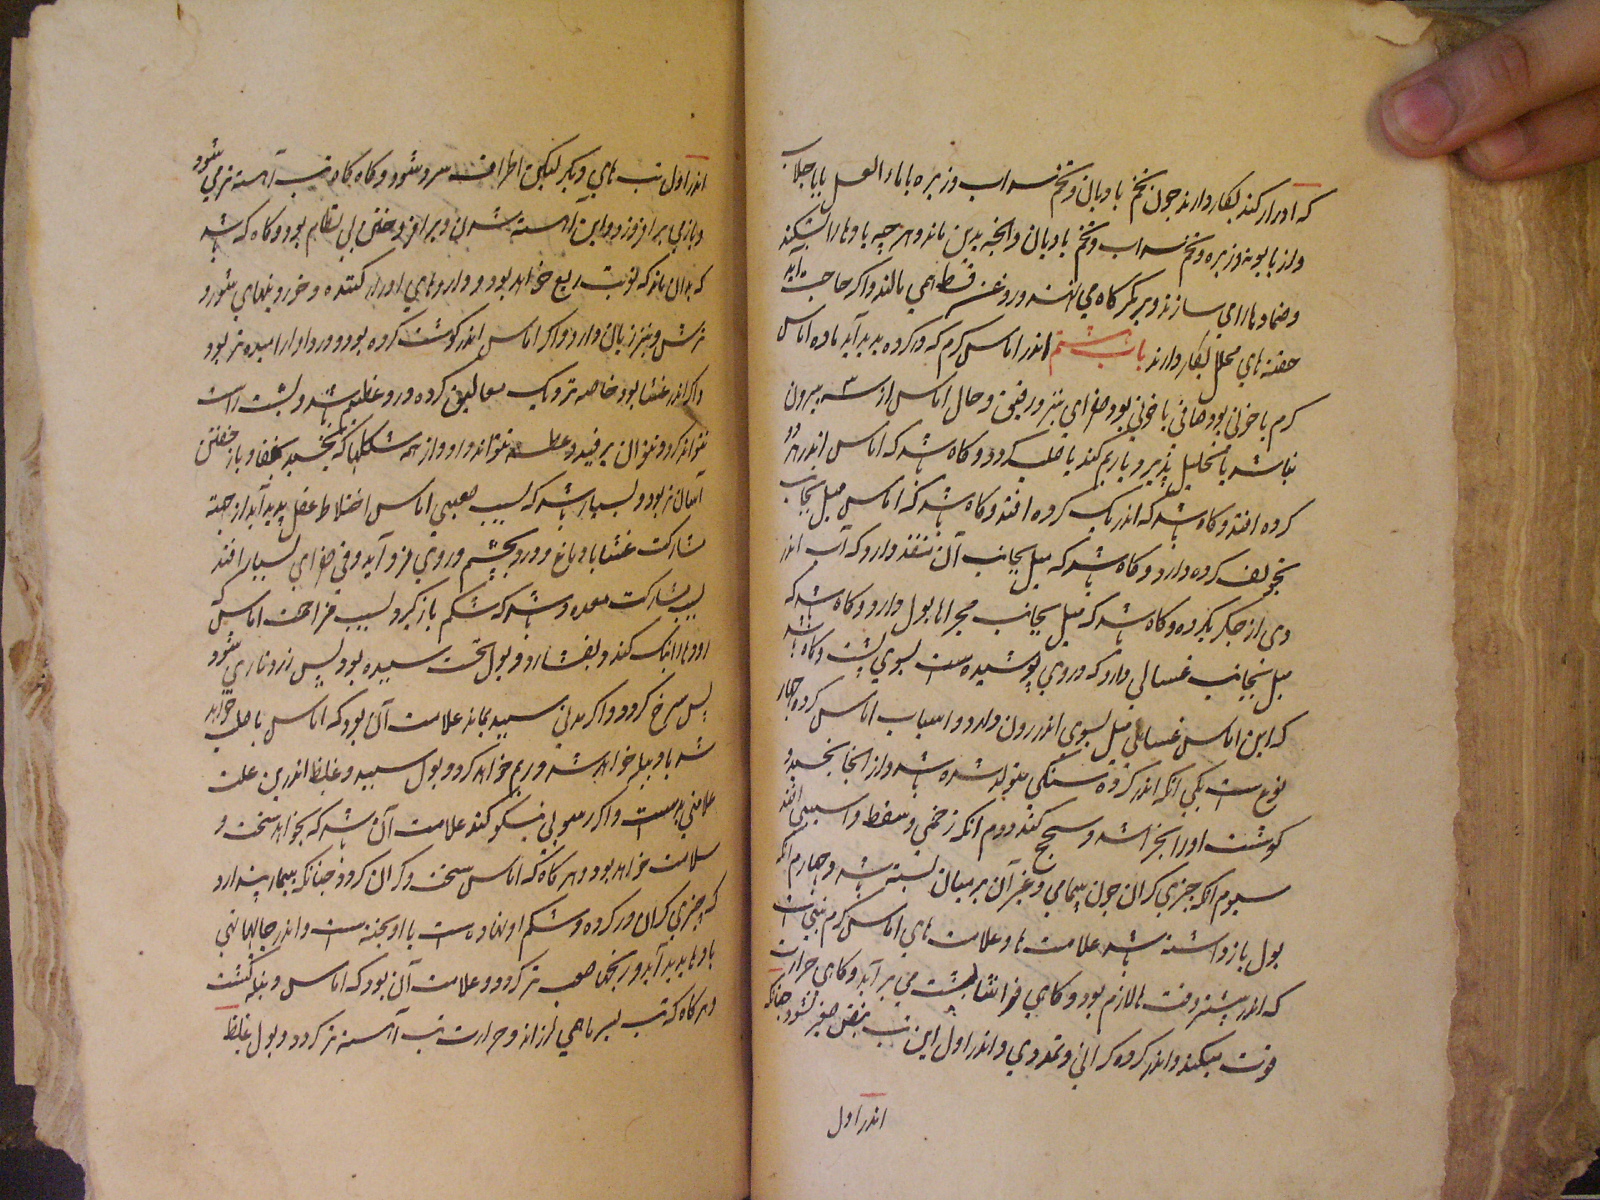 که ادرار کند بکار دارند چون تخم بادیان و تخم سداب و زیره با ماء العسل یا با جلاب
و از بابونه و زیره و تخم سداب و تخم بادیان و آنچه بدین ماند و هر چه بادها را بشکند
و ضمادها را می سازند و بر کمرگاه می نهند و روغن قسط همی مالند و اگر حاجت آید
حقنه های محلل بکار دارند باب ششم اندر اماس کرم که در کرده پدید آید ماده اماس
کرم یا خونی بود صافی یا خونی بود صفرای تیز و رقیق و حال اماس از سه بیرون
نباشد یا تحلیل پذیرد یا ریم کند یا صلب کردد و کاه باشد که اماس اندر هر دو
کرده افتد و کاه باشد که اندر یک کرده افتد و کاه باشد که اماس میل بجانب
تجویف کرده دارد و کاه باشد که میل بجانب آن منفذ دارد که آب اندر
وی از جکر بکرده و کاه باشد که میل بجانب مجراها بول دارد و کاه باشد که
میل بجانب غشائی دارد که در وی پوشیده ست بسوی پشت و کاه باشد
که این اماس غشائی میل بسوی اندرون دارد و اسباب اماس کرده چهار
نوع ست یکی آنکه اندر کرده سنکی متولد شده باشد و از آنجا بجنبد و
کوشت او را بخراشد و سحج کند دوم آنکه زخمی و سقط و آسیبی افتد
سیوم آنکه چیزی کران چون همیانی و غیر آن بر میان بسته باشد و چهارم آنکه
بول باز داشته باشد علامت ها و علامت های اماس کرم تبی است
که اندر بیشتر وقت ها لازم بود و کاهی فراشا پشت می بر آید و کاهی حرارت
قوت میکند و اندر کرده کرانی و تمددی و اندر اول این تب نبض صغیر شود چنانکه
اندر اول
اندر اول تب های دیکر لیکن اطراف سرد شود و کاه کاه تب آهسته تر می شود
و باز می بر افروزد و این آهسته شدن و بر افروختن بی نظام بود و کاه که باشد
که بدان ماند که نوبت ربع خواهد بود و داروهای ادرار کننده و خوردنیهای شور و
ترش و تیز زیان دارد و اکر اماس اندر کوشت کرده بود درد او ارامیده تر بود
و اکر اندر غشا بود خاصه نزدیک معالیق کرده درد عظیم باشد و پشت راست
نتواند کرد و نتوان برفتن و عطسه نتواند داد و از همه شکلها که بخسبد بقفا باز خفتن
آسان تر بود و بسیار باشد که بسبب صعبی اماس اختلاط عقل پدید آید از جهت
مشارکت غشا با دماغ و درد بچشم و روی فرو آید و قی صفرای بسیار افتد
بسبب مشارکت معده و باشد که شکم باز کیرد بسبب مزاحمت اماس که
رودها را تنک کند و بفشارد و بول نخست سپید بود پس زرد و ناری شود
پس سرخ کردد و اکر مدتی سپید بماند علامت آن بود که اماس یا صلب خواهد
شد یا دبیله خواهد شد و ریم خواهد کرد و بول سپید و غلیظ اندرین علت
علامتی بد ست و اکر رسوبی نیکو کند علامت آن باشد که بخواهد پخت و
سلامت خواهد بود و هر کاه که اماس سخت و کران کردد چنانکه بیمار پندارد
که چیزی کران در کرده و شکم او نهاده است یا آویخته ست و اندر جالها تهی
بادها پدید آید و رنجها صعب تر کردد و علامت آن بود که اماس دبیله کشت
و هر کاه که تب بسر ما همی لرزاند و حرارت تب آهسته تر کردد و بول غلیظ